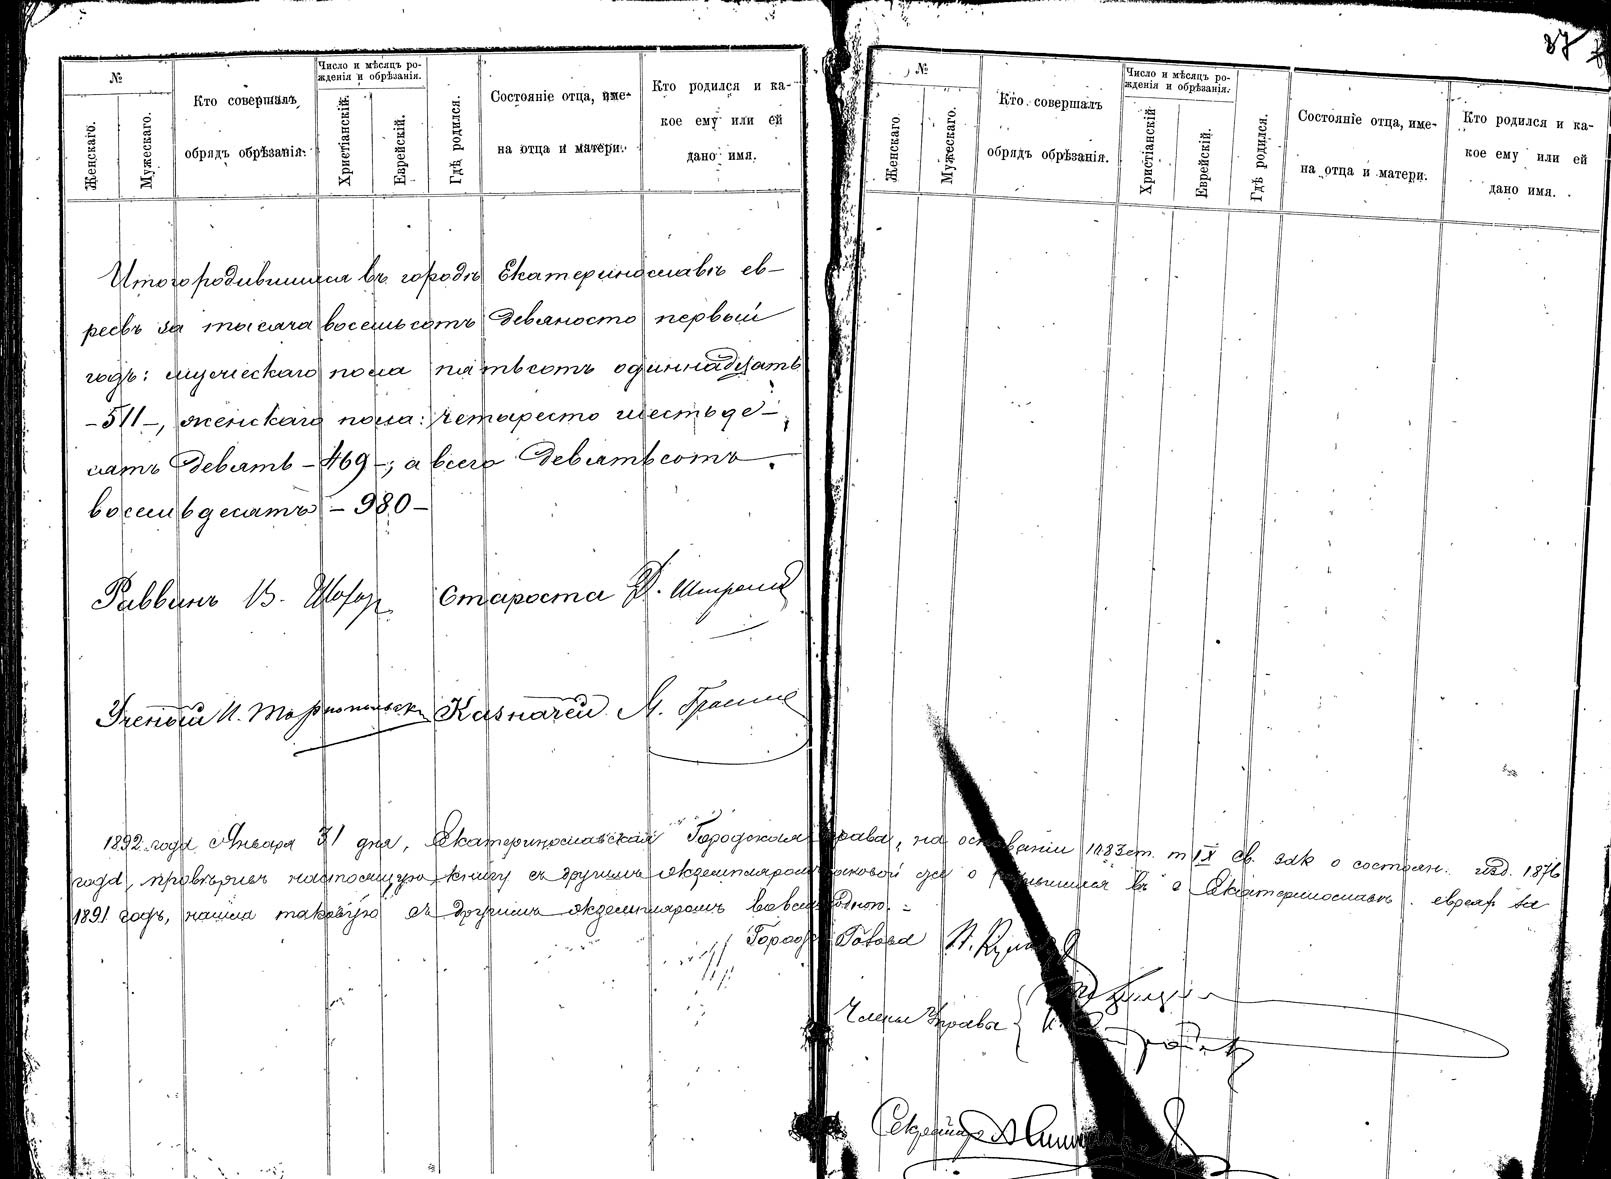 №
Женскаго.
Мужескаго.
Кто совершалъ
обрядъ обрѣзанія.
Число и мѣсяцъ ро-
жденія и обрѣзанія.
Христіанскій.
Еврейскій.
Гдѣ родился.
Состояніе отца, име-
на отца и матери.
Кто родился и ка-
кое ему или ей
дано имя.
Итого родившихся въ городѣ Екатеринославѣ ев-
реевъ за тысяча восемьсотъ девяносто первый
годъ: мужескаго пола пятьсотъ одиннадцать
-511-, женскаго пола: четыресто шестьде-
сятъ девять -469-; а всего девятьсотъ
восемьдесятъ -980-
Раввинъ В. Шохор Староста Д.
Ученый И. Тарнопольскій Казначей М.
37
№
Женскаго.
Мужескаго.
Кто совершалъ
обрядъ обрѣзанія.
Число и мѣсяцъ ро-
жденія и обрѣзанія.
Христіанскій
Еврейскій.
Гдѣ родился.
Состояніе отца, име-
на отца и матери.
Кто родился и ка-
кое ему или ей
дано имя.
1892 года Января 31 дня, Екатеринославская Городская Управа, на основаніи 1083 ст. т. IX Св. зак о состоян. изд. 1876
года, провѣривъ настоящую книгу съ другимъ экземпляромъ таковой же о родившихся въ г Екатеринославѣ евреях за
1891 годъ, нашла таковую съ другимъ экземпляромъ во всемъ сходною.
Город Голова
Члены Управы
Секретарь